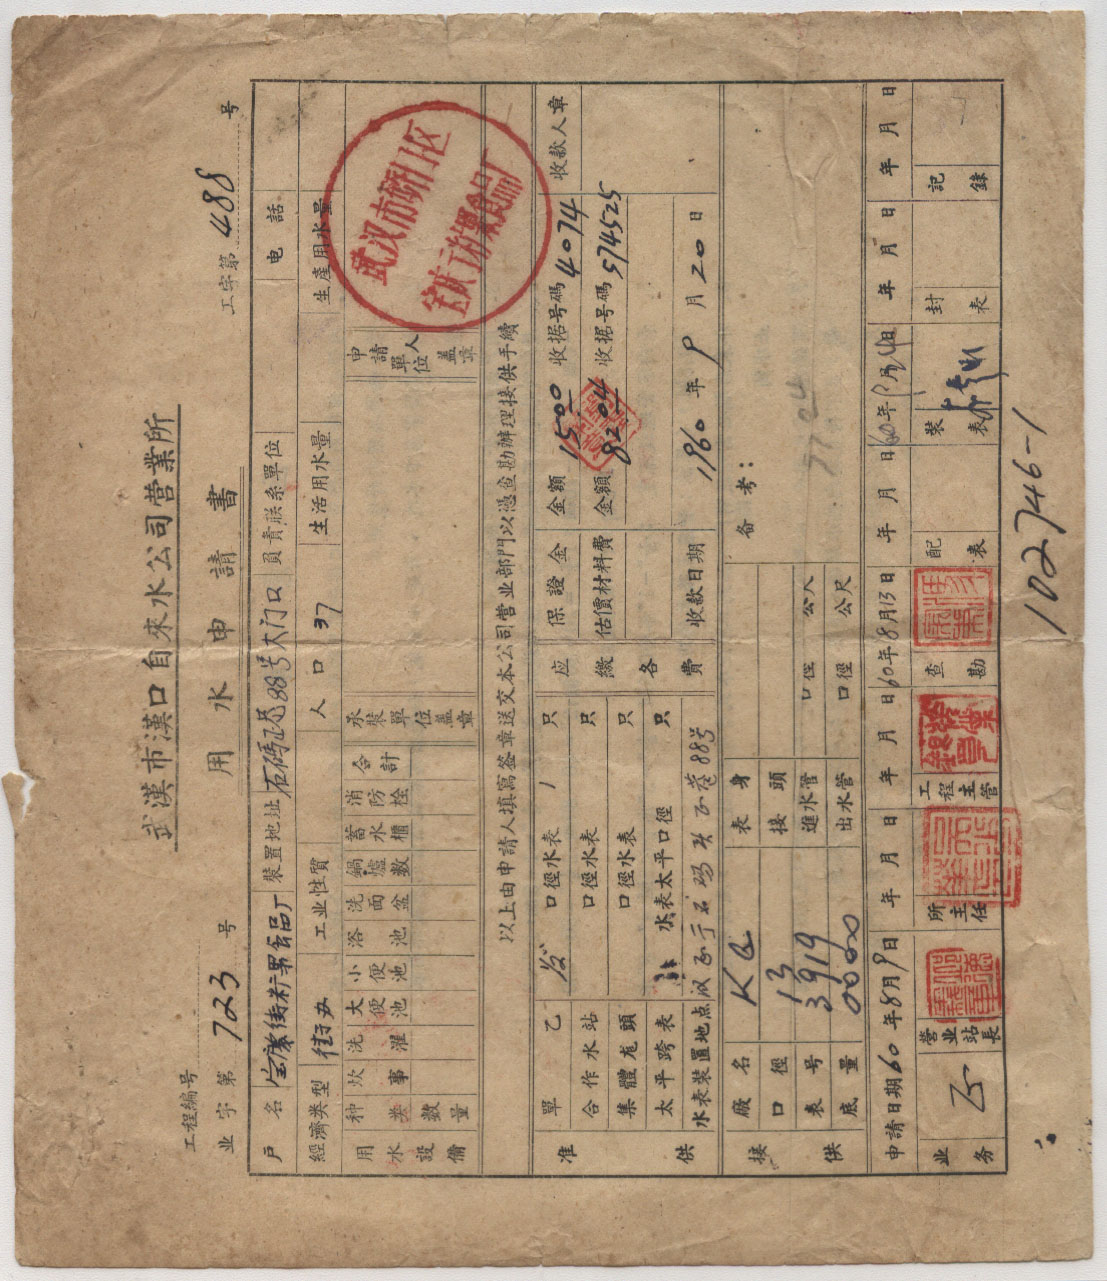 武漢市漢口自來水公司营業所
用水申請書
工程編号
业字第 723 号
工字第 488 号
戶名 宝慶街 食品厂 裝置地址 石碼正巷88号大门口 負責联系單位 电話
經濟类型 街办 工业性質 人口 37 生活用水量 生産用水量
用水設備 种类 炊事 洗濯 大便池 小便池 浴池 洗面盆 鍋爐 蓄水櫃 消防栓 合計 承裝單位蓋章 申請單位人蓋章
数量
武汉市硚口区
食品厂
以上由申請人填寫签章送交本公司营业部門以憑查勘辦理接供手續
准供
單乙 口徑水表 1 只
合作水站 口徑水表 只
集體龙頭 口徑水表 只
太平跨表 水表太平口徑 只
水表裝置地点 石碼 正巷88号
应繳各費
保證金 金額 1500 收据号碼 4074 收款人章
估價材料費 金額 8204 收据号碼 574525
收款日期 1960年9月20日
接供
廠名 KQ 表身
口徑 13 接頭
表号 3919 進水管 口徑 公尺
底量 0000 出水管 口徑 公尺
备考：
7724
申請日期60年8月9日 年月日 年月日 60年8月13日 年月日 60年9月24日 年月日 年月日
业务 营业站長 所主任 工程主管 查勘 配表 裝表 封表 記錄
102746-1